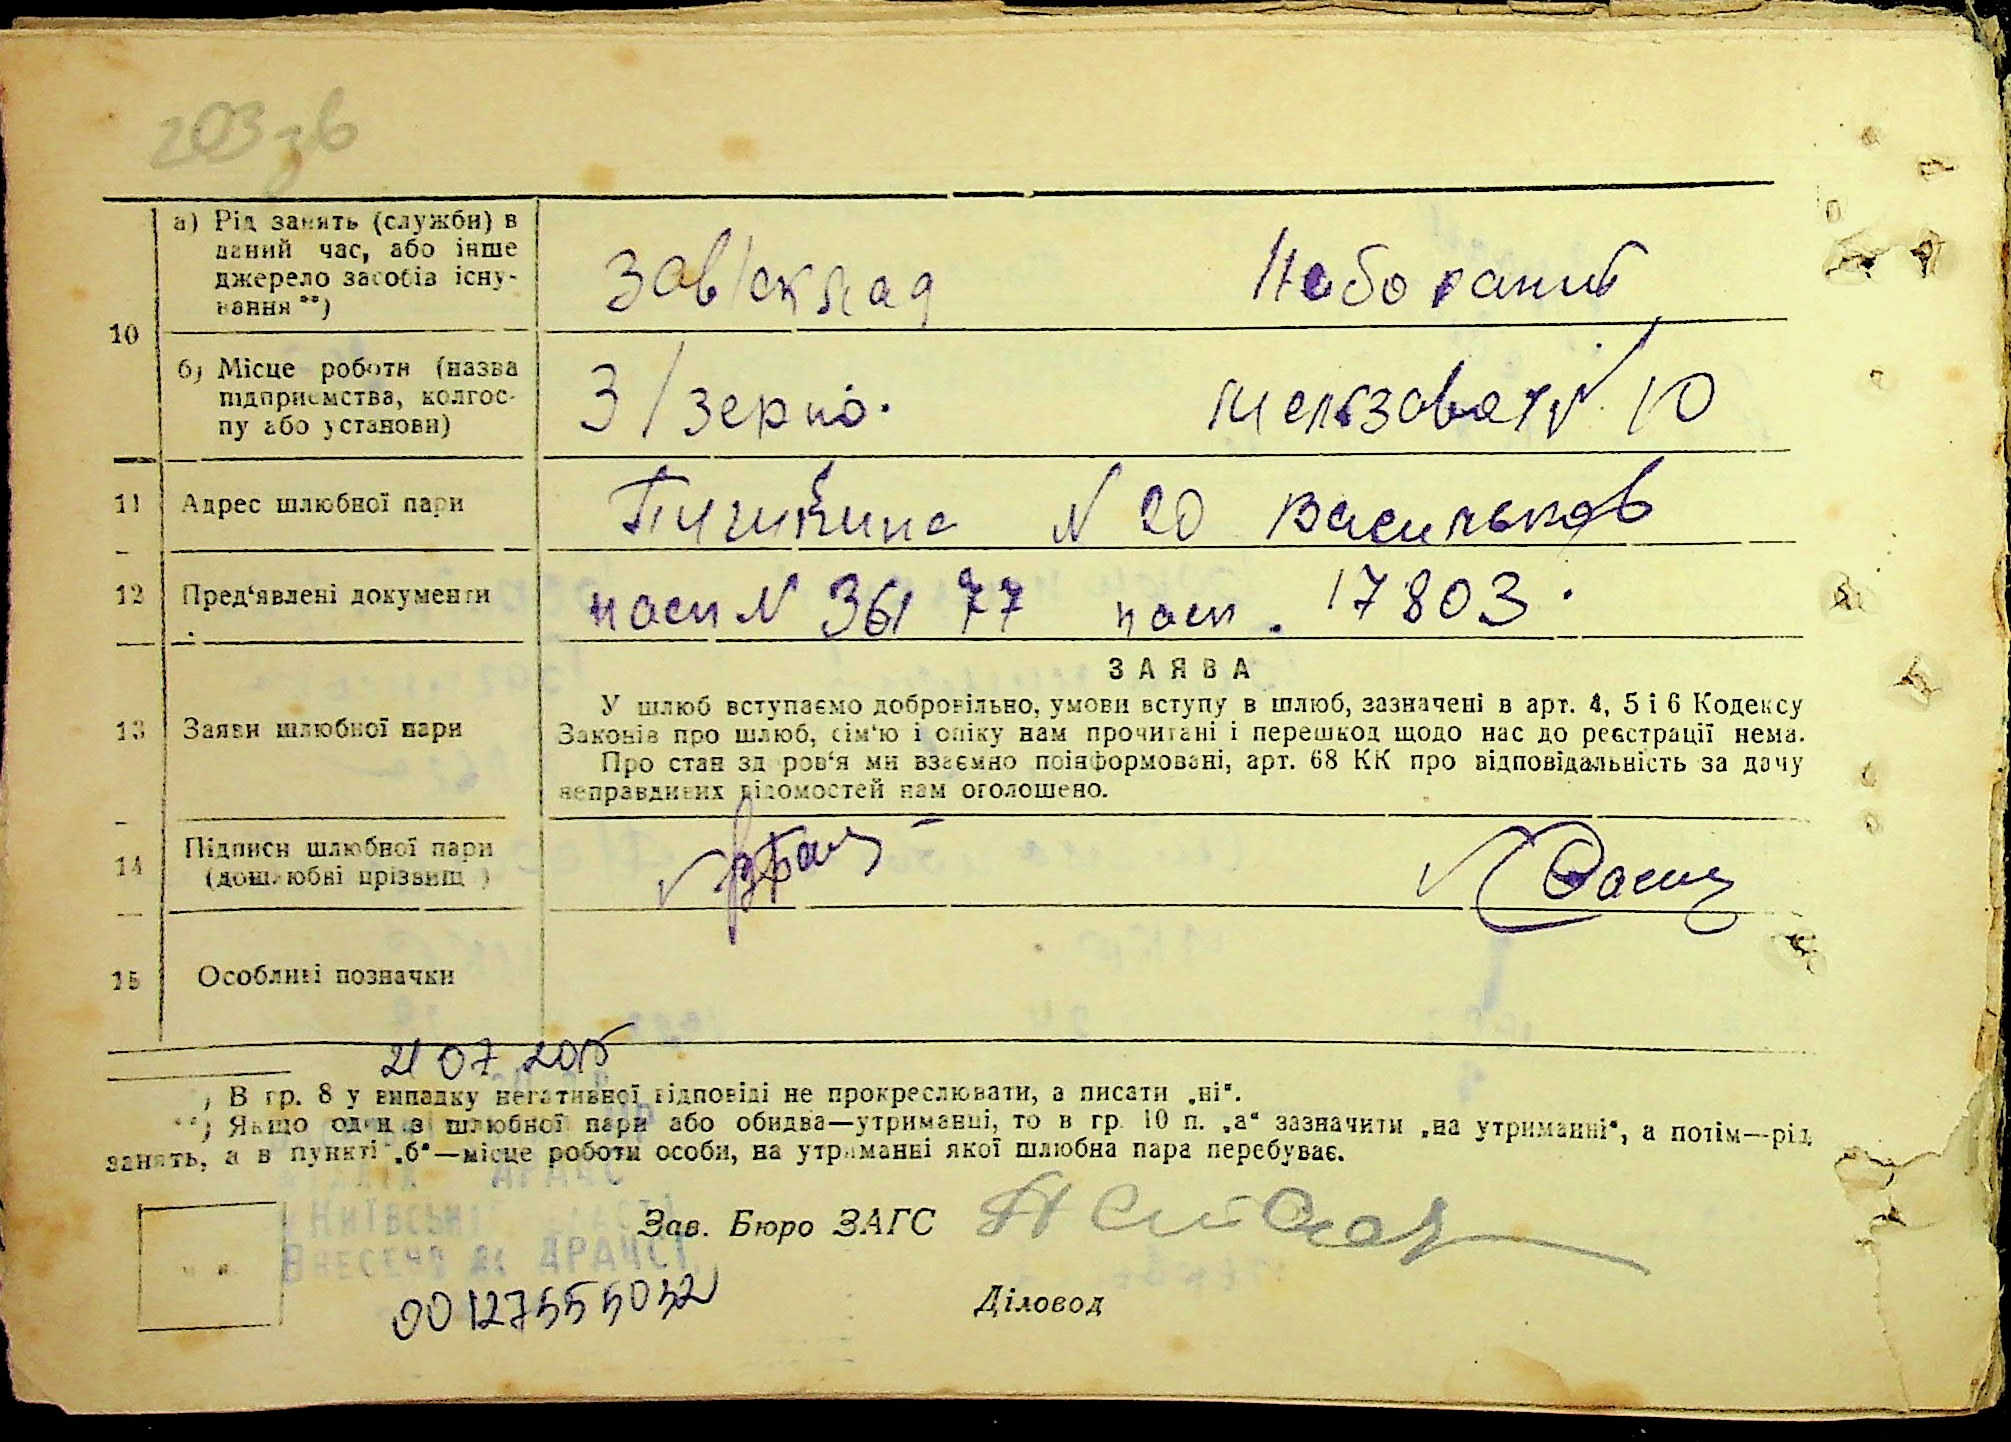 203 зв
а) Рід занять (служби) в
даний час, або інше
джерело засобів існу-
вання **)
Зав/склад
10
б) Місце роботи (назва
підприємства, колгос-
пу або установи)
З/зерно.
10
11 Адрес шлюбної пари
N 20 Васильков
12 Пред‘явлені документи
пасп N 36177 пасп. 17803.
ЗАЯВА
13 Заяви шлюбної пари
У шлюб вступаємо добровільно, умови вступу в шлюб, зазначені в арт. 4, 5 і 6 Кодексу
Законів про шлюб, сім‘ю і опіку нам прочитані і перешкод щодо нас до реєстрації нема.
Про стан здоров‘я ми взаємно поінформовані, арт. 68 КК про відповідальність за дачу
неправдивих відомостей нам оголошено.
14 Підписи шлюбної пари
(дошлюбні прізвищ )
15 Особливі позначки
21 07 2015
*) В гр. 8 у випадку негативної відповіді не прокреслювати, а писати „ні“.
**) Якщо один зі шлюбної пари або обидва—утриманці, то в гр. 10 п. „а“ зазначити „на утриманні“, а потім—рід
занять, а в пункті „б“—місце роботи особи, на утриманні якої шлюбна пара перебуває.
Київської
Зав. Бюро ЗАГС
Внесено до ДРАЦСГ
м. п.
00127555032
Діловод